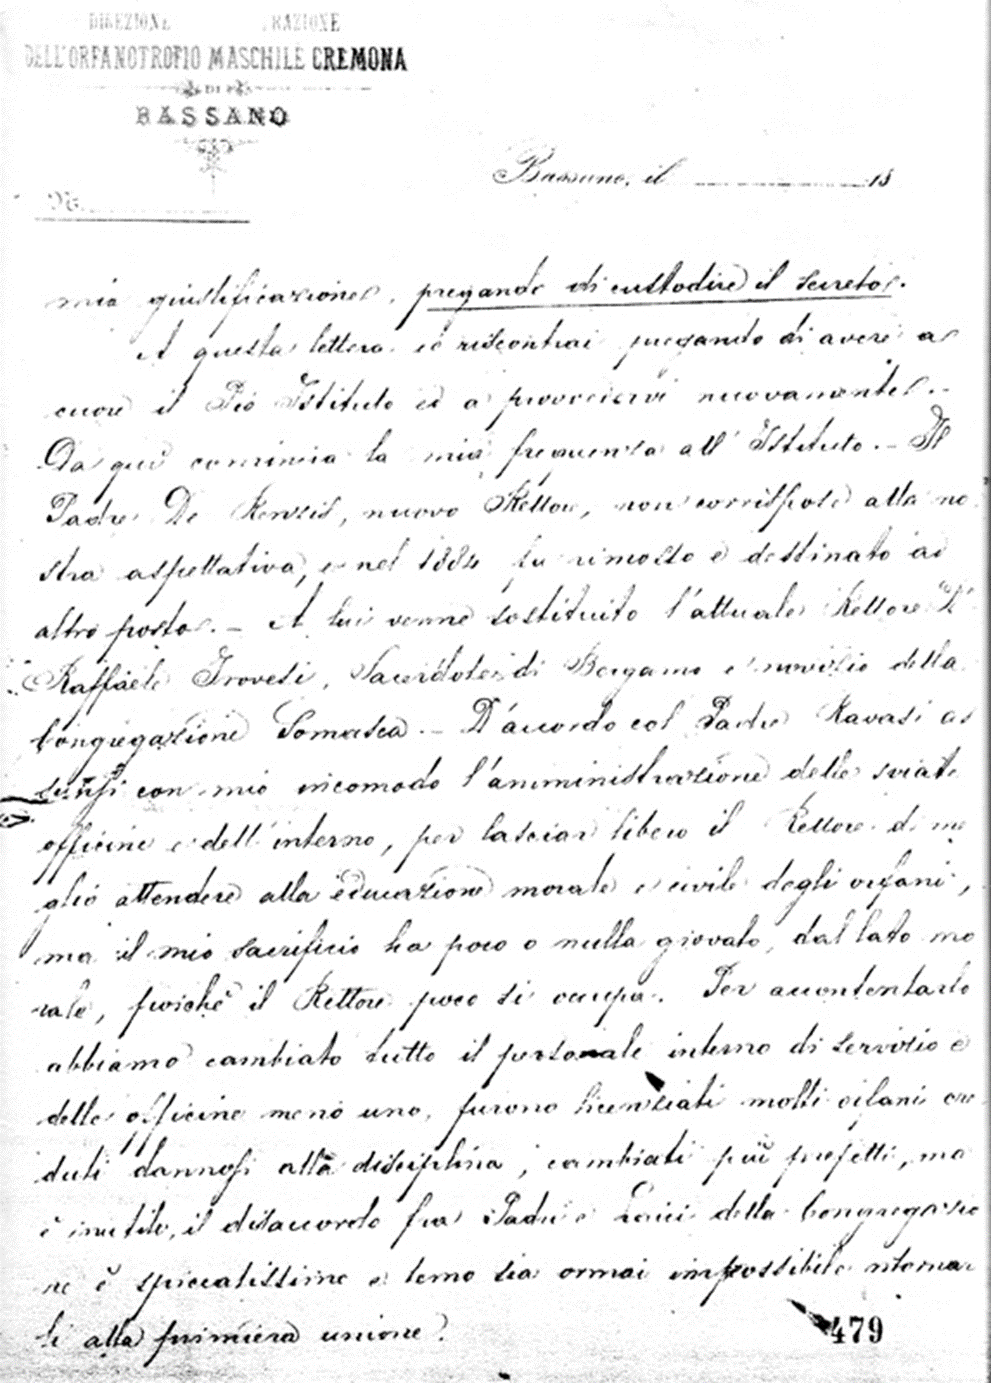 DIREZIONE RAZIONE
DELL'ORFANOTROFIO MASCHILE CREMONA
DI
BASSANO
Bassano, il 18
N.
mia giustificazione, pregando di custodire il secreto.
A questa lettera io riscontrai pregando di avere a
cuore il Pio Istituto ed a provvedervi nuovamente. -
Da qui comincia la mia frequenza all' Istituto. - Il
Padre De Renzis, nuovo Rettore, non corrispose alla no
stra aspettativa, e nel 1884 fu rimosso e destinato ad
altro posto. - A lui venne sostituito l'attuale Rettore D.
Raffaele Trovesi, Sacerdote di Bergamo e novizio della
Congregazione Somasca. - D'accordo col Padre Ravasi as
sunsi con mio incomodo l'amministrazione delle sviate
officine e dell'interno, per lasciar libero il Rettore di me
glio attendere alla educazione morale e civile degli orfani,
ma il mio sacrificio ha poco o nulla giovato, dal lato mo
rale, poichè il Rettore poco si occupa. Per accontentarlo
abbiamo cambiato tutto il personale interno di servizio e
delle officine meno uno, furono licenziati molti orfani cre
duti dannosi alla disciplina, cambiati più prefetti, ma
è inutile, il disaccordo fra Padri e Laici della Congregazio
ne è spiccatissimo e temo sia ormai impossibile ritornar
li alla primiera unione.
479